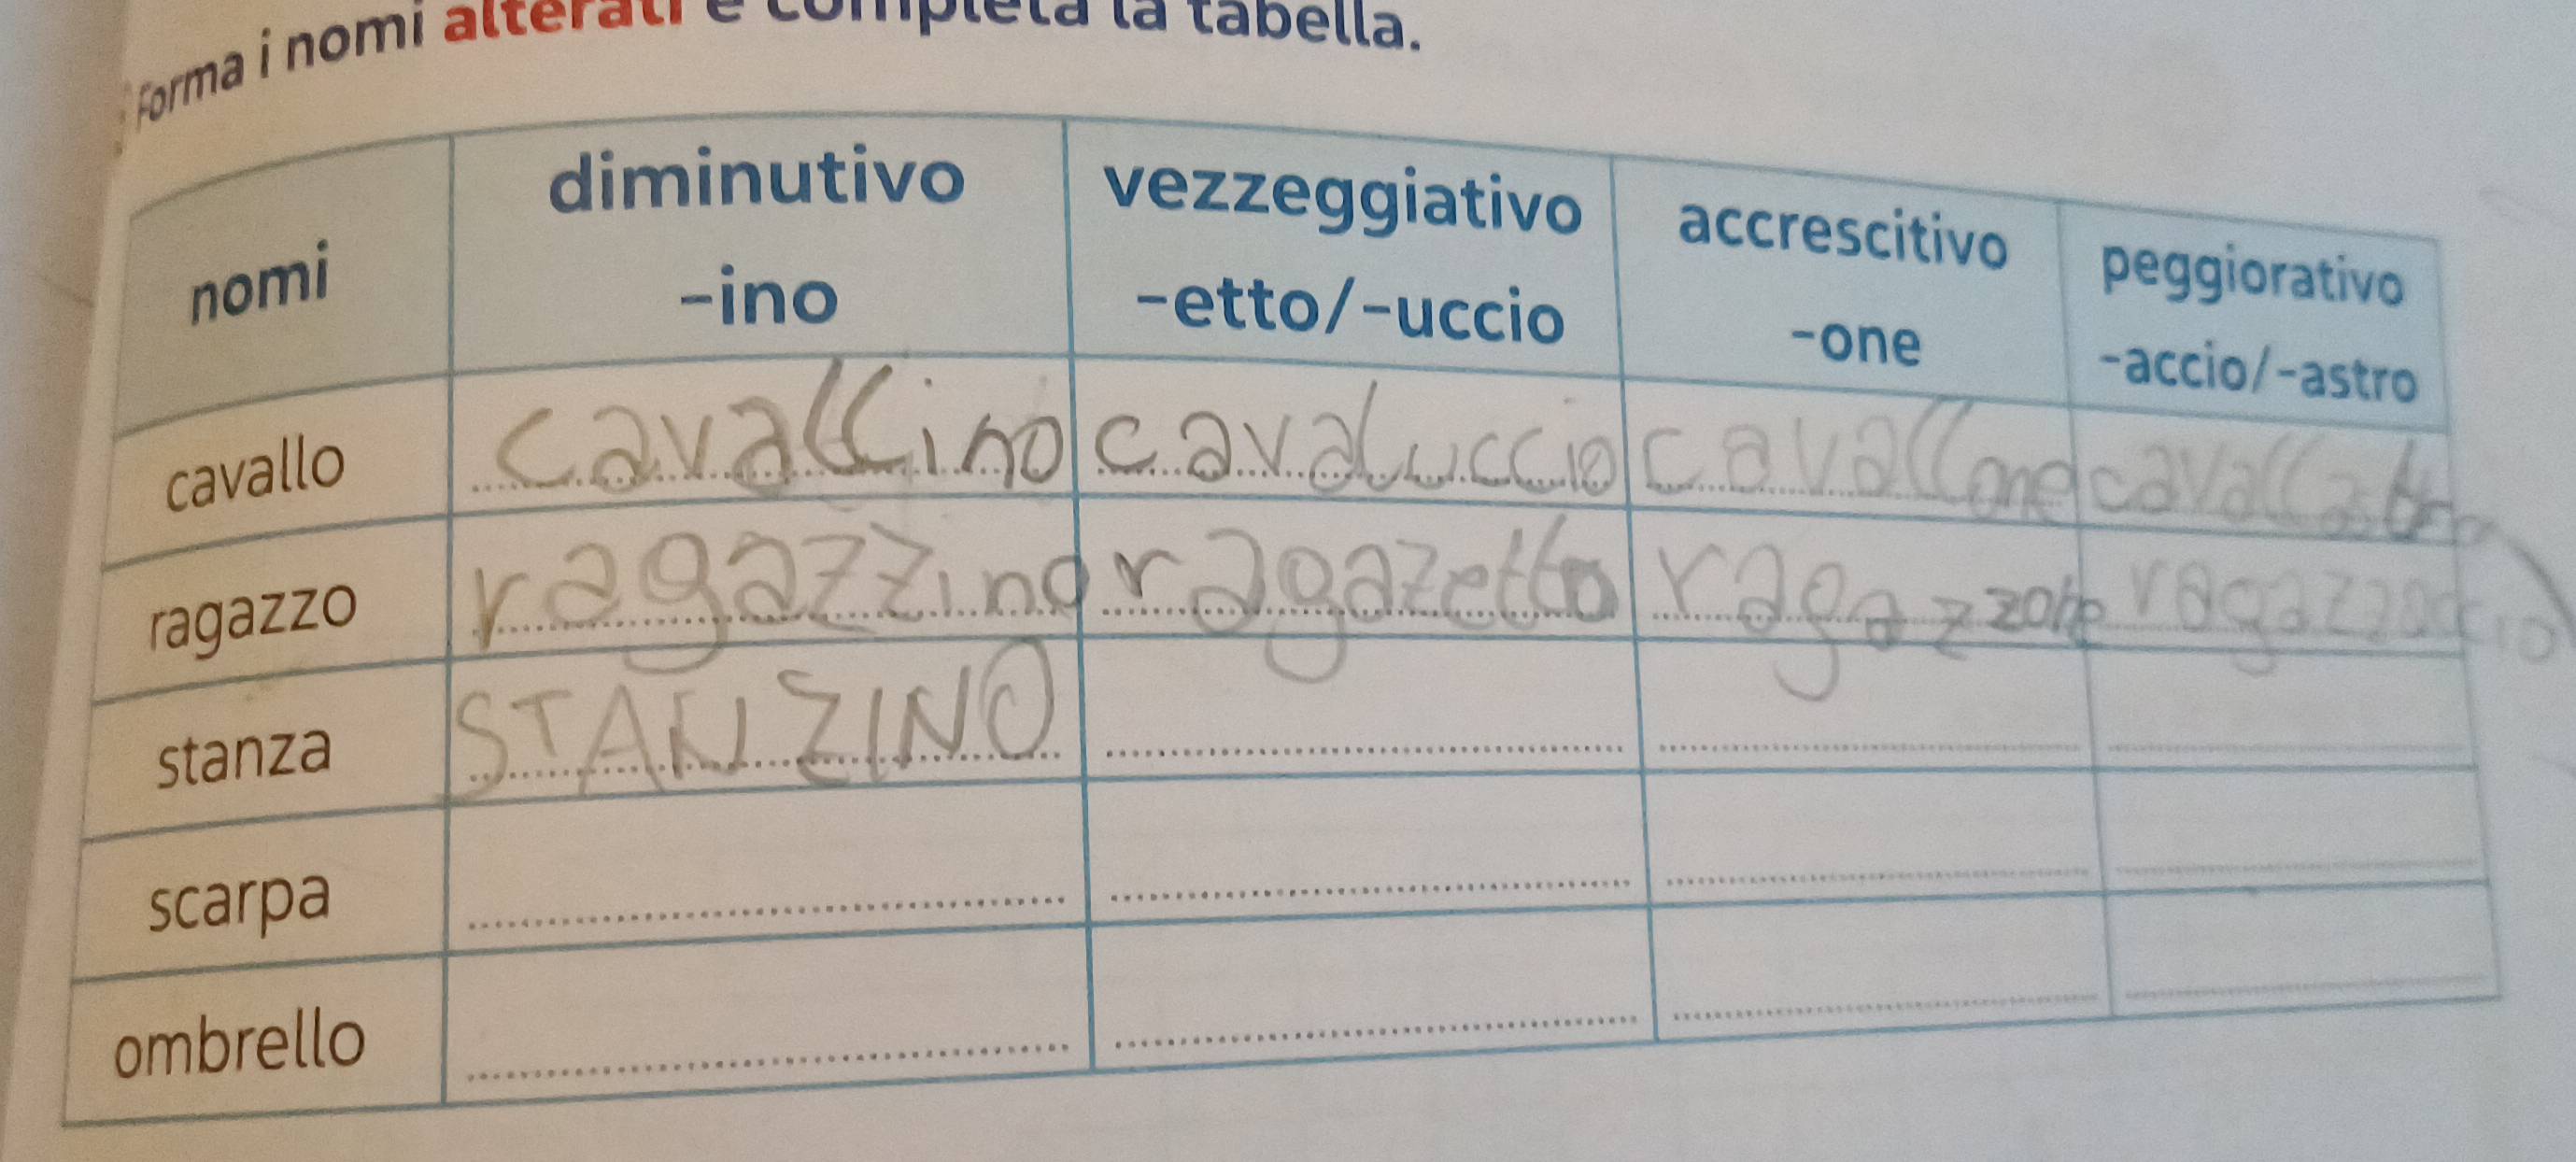 Forma i nomi alterati e completa la tabella.
nomi diminutivo -ino vezzeggiativo -etto/-uccio accrescitivo -one peggiorativo -accio/-astro
cavallo cavallino cavaluccio cavallone cavallastro
ragazzo ragazzino ragazetto ragazzone ragazzaccio
stanza STANZINO
scarpa
ombrello